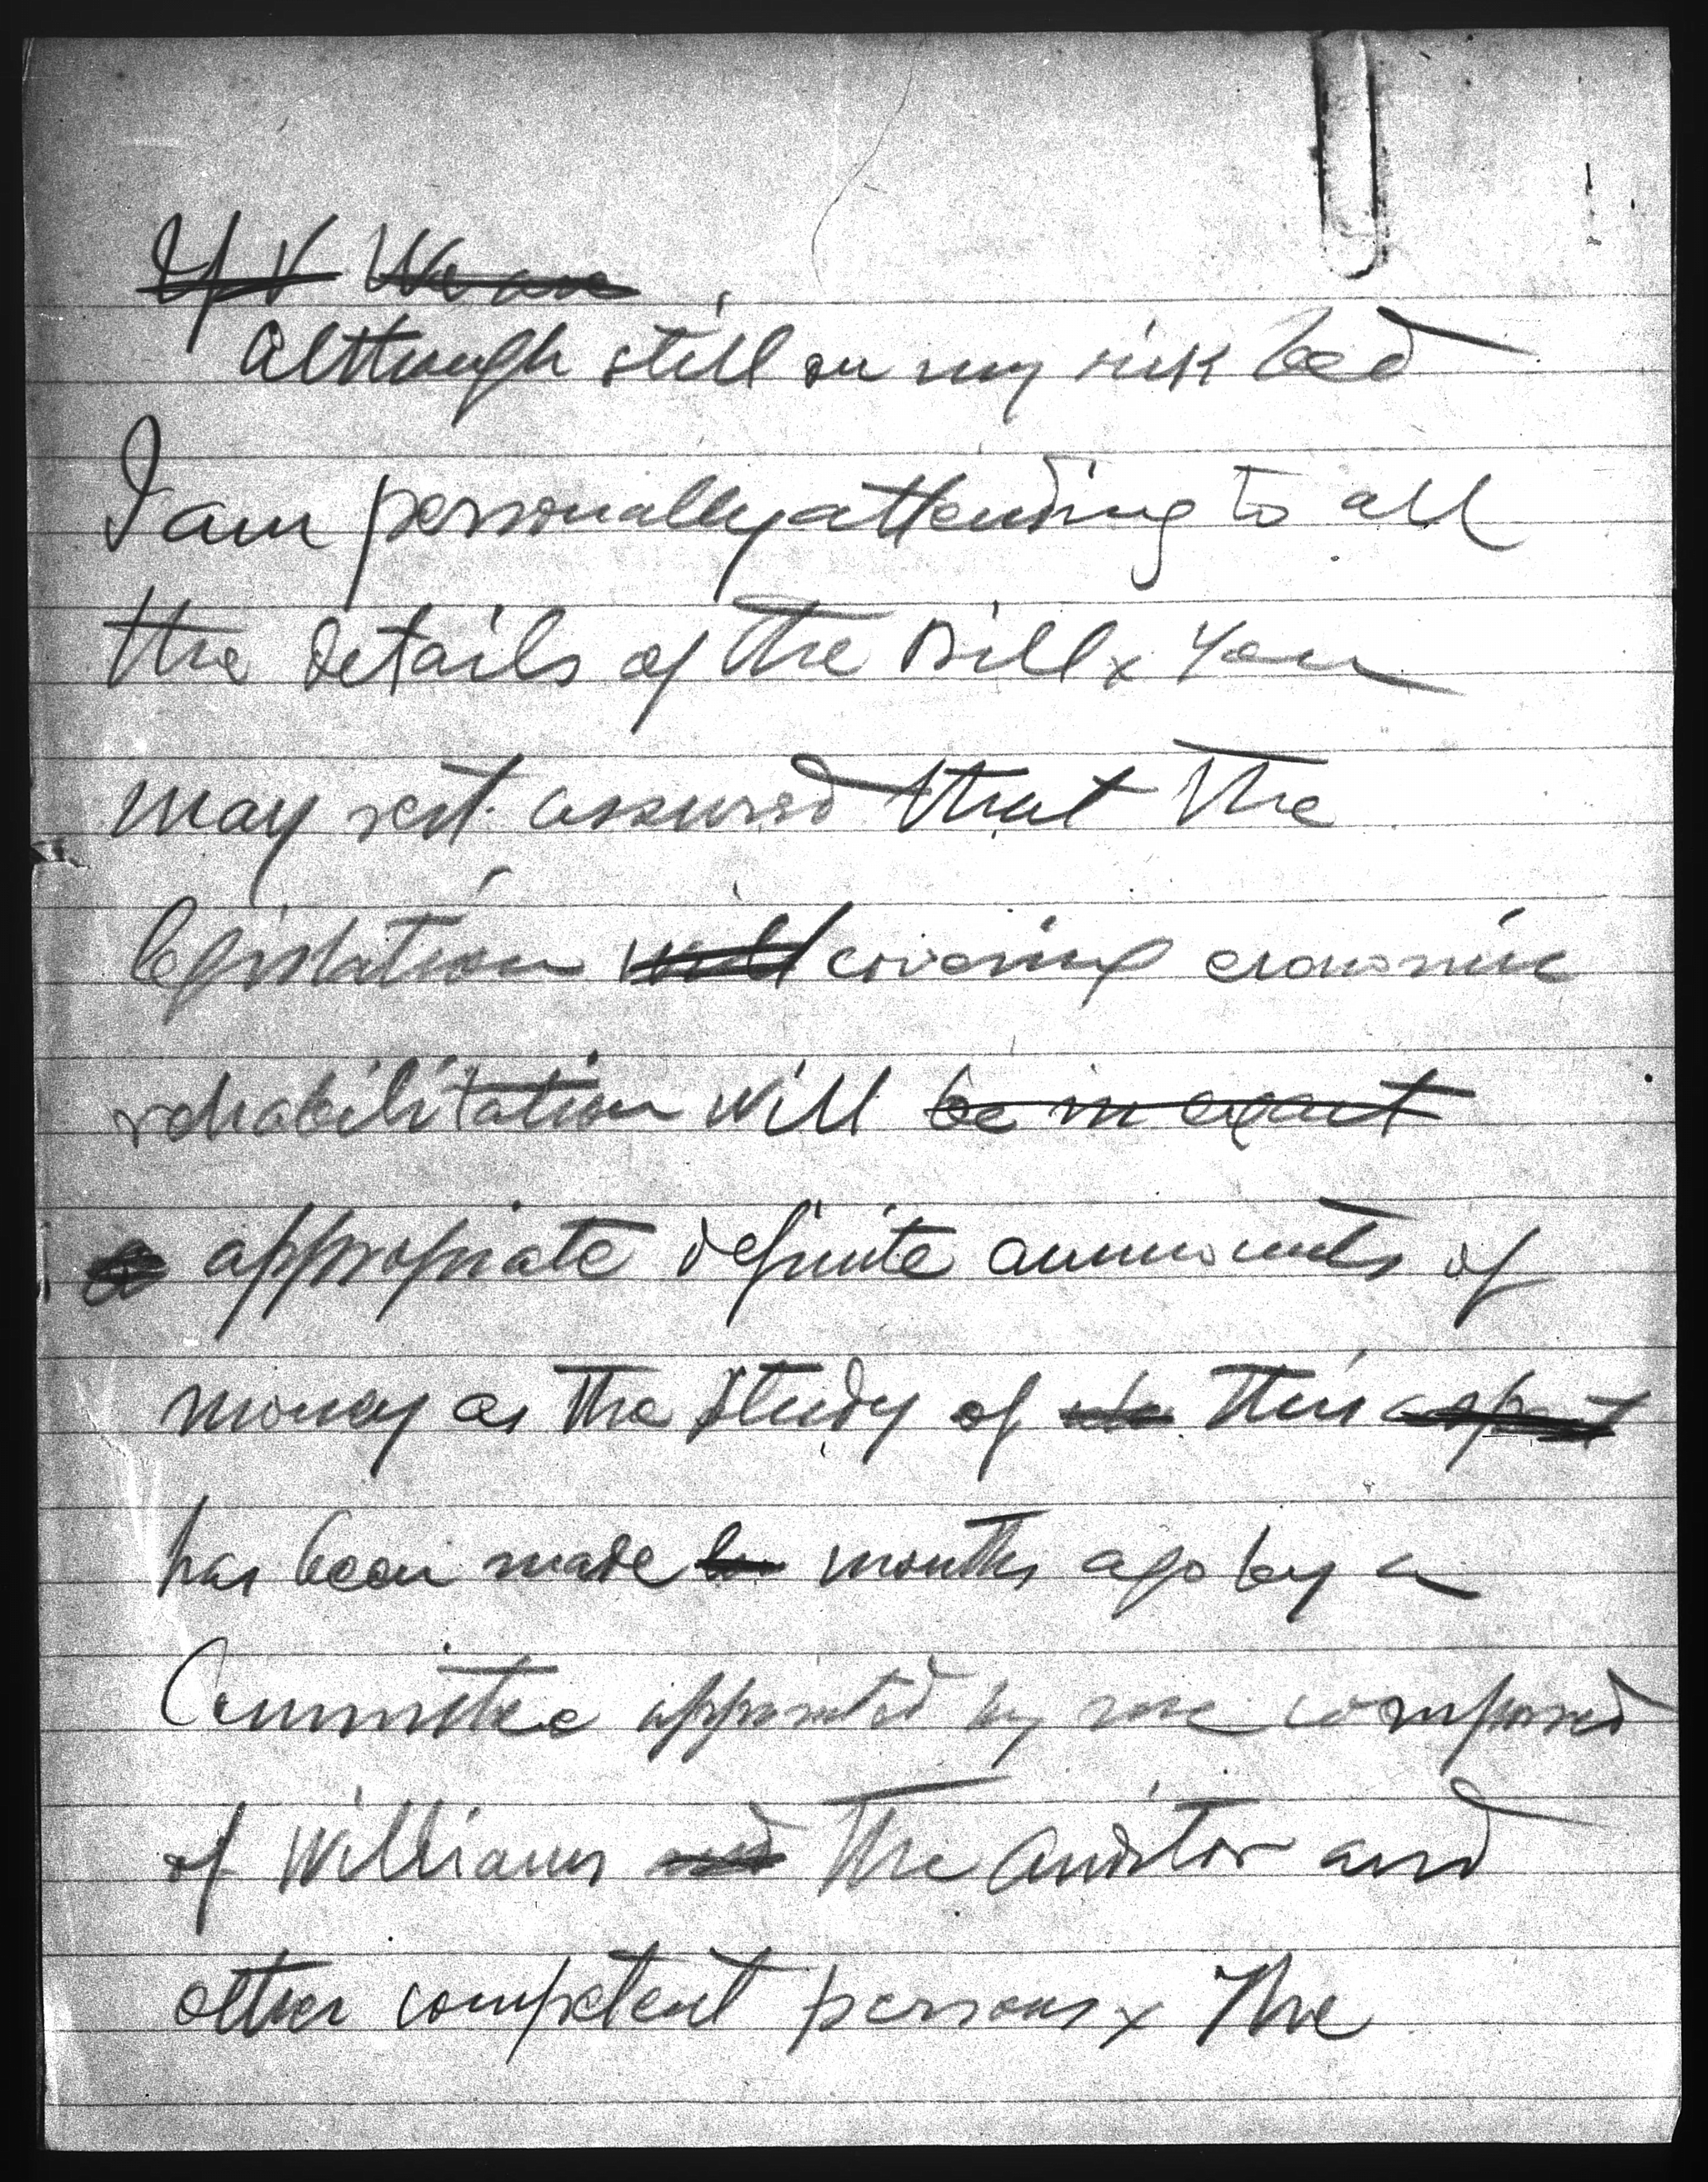 If V We are
Although still on my sick bed
I am personally attending to all
the details of the Bill x You
may rest assured that the
legislation will covering economic
rehabilitation will be in exact
appropriate definite ammounts of
money as the study of this aspect
has been made months ago by a
Committee appointed by me composed
of Williams and the Auditor and
other competent persons x The